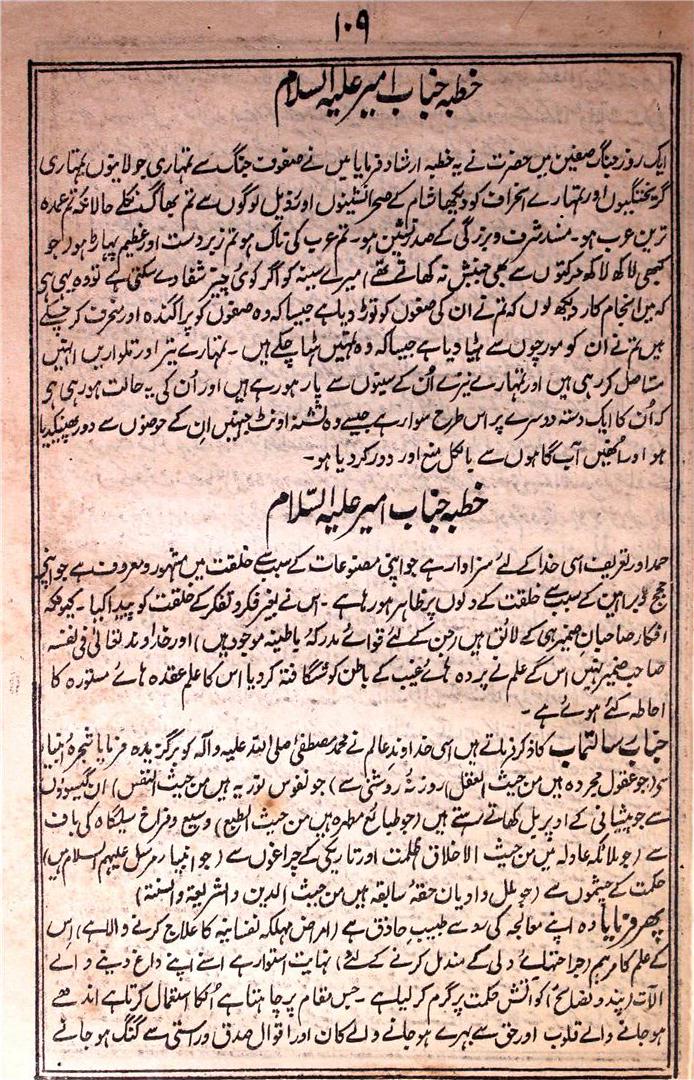 ۱۰۹
خطبہ جناب امیر علیہ السلام
ایک روز جنگ صفین میں حضرت نے یہ خطبہ ارشاد فرمایا میں نے صفوف جنگ سے تمہاری جولانیوں تمہاری
گریختگیوں اور تمہارے انحراف کو دیکھا شام کے صحرانشینوں اور رذیل لوگوں سے تم بھاگ نکلے حالانکہ تم عمدہ
ترین عرب ہو۔ مسند شرف و بزرگی کے صدر نشین ہو۔ تم عرب کی ناک ہو تم زبردست اور عظیم پہاڑ ہو (جو
کبھی لاکھ لاکھ حرکتوں سے بھی جنبش نہ کھاتے تھے) میرے سینہ کو اگر کوئی چیز شفا دے سکتی ہے تو وہ یہی ہی
کہ میں انجام کار دیکھ لوں کہ تم نے ان کی صفوں کو توڑ دیا ہے جیسا کہ وہ صفوں کو پراگندہ اور منحرف کر چکے
ہیں تم نے ان کو مورچوں سے ہٹا دیا ہے جیسا کہ وہ تمہیں ہٹا چکے ہیں۔ تمہارے تیر اور تلواریں انہیں
متاصل کر رہی ہیں اور تمہارے نیزے اُن کے سینوں سے پار ہو رہے ہیں اور اُن کی یہ حالت ہو رہی ہی
کہ اُن کا ایک دستہ دوسرے پر اس طرح سوار ہے جیسے وہ تشنہ اونٹ جنہیں ان کے حوضوں سے دور پھینکدیا
ہو اور اُنھیں آب گاہوں سے بالکل منع اور دور کر دیا ہو۔
خطبہ جناب امیر علیہ السّلام
حمد اور تعریف اسی خدا کے لئے سزاوار ہے جو اپنی مصنوعات کے سبب سے خلقت میں مشہور و معروف ہے جو اپنی
حجج و براہین کے سبب سے خلقت کے دلوں پر ظاہر ہو رہا ہے۔ اس نے بغیر فکر و تفکر کے خلقت کو پیدا کیا۔ کیونکہ
افکار صاحبان ضمیر ہی کے لائق ہیں (جن کے لئے قوائے مدرکہ باطنیہ موجود ہیں) اور خداوند تعالیٰ فی نفسہ
صاحب ضمیر نہیں اس کے علم نے پردہ ہائے غیب کے باطن کو شگافتہ کر دیا اس کا علم عقدہ ہائے مستورہ کا
احاطہ کئے ہوئے ہے۔
جناب رسالتماب کا ذکر فرماتے ہیں اسی خداوند عالم نے محمد مصطفیٰ صلی اللہ علیہ وآلہ کو برگزیدہ فرمایا شجرہ انبیاء
سی (جو عقول مجردہ ہیں من حیث العقل) روزنہ روشنی سے (جو نفوس نوریہ ہیں من حیث النفس) ان گیسوؤں
سے جو پیشانی کے اوپر بل کھاتے رہتے ہیں (جو طبائع مطہرہ ہیں من حیث الطبع) وسیع و فراخ سیلگاہ کی ناف
سے (جو ملائکہ عادلہ ہیں من حیث الاخلاق) ظلمت اور تاریکی کے چراغوں سے (جو انبیاء مرسل علیہم السلام ہیں)
حکمت کے چشموں سے (جو ملل و ادیان حقہ سابقہ ہیں من حیث الدین والشریعۃ والسنۃ)
پھر فرمایا وہ اپنے معالجہ کی رو سے طبیب حاذق ہے (امراض مہلکہ نفسانیہ کا علاج کرنے والا ہے) اس
کے علم کا مرہم (جراحتہائے دلی کے مندمل کرنے کے لئے) نہایت استوار ہے اسنے اپنے داغ دینے والے
آلات (پند و نصائح) کو آتش حکمت پر گرم کر لیا ہے۔ جس مقام پر چاہتا ہے اُنکا استعمال کرتا ہے اندھے
ہو جانے والے قلوب اور حق سے بہرے ہو جانے والے کان اور اقوال صدق و راستی سے گنگ ہو جانے